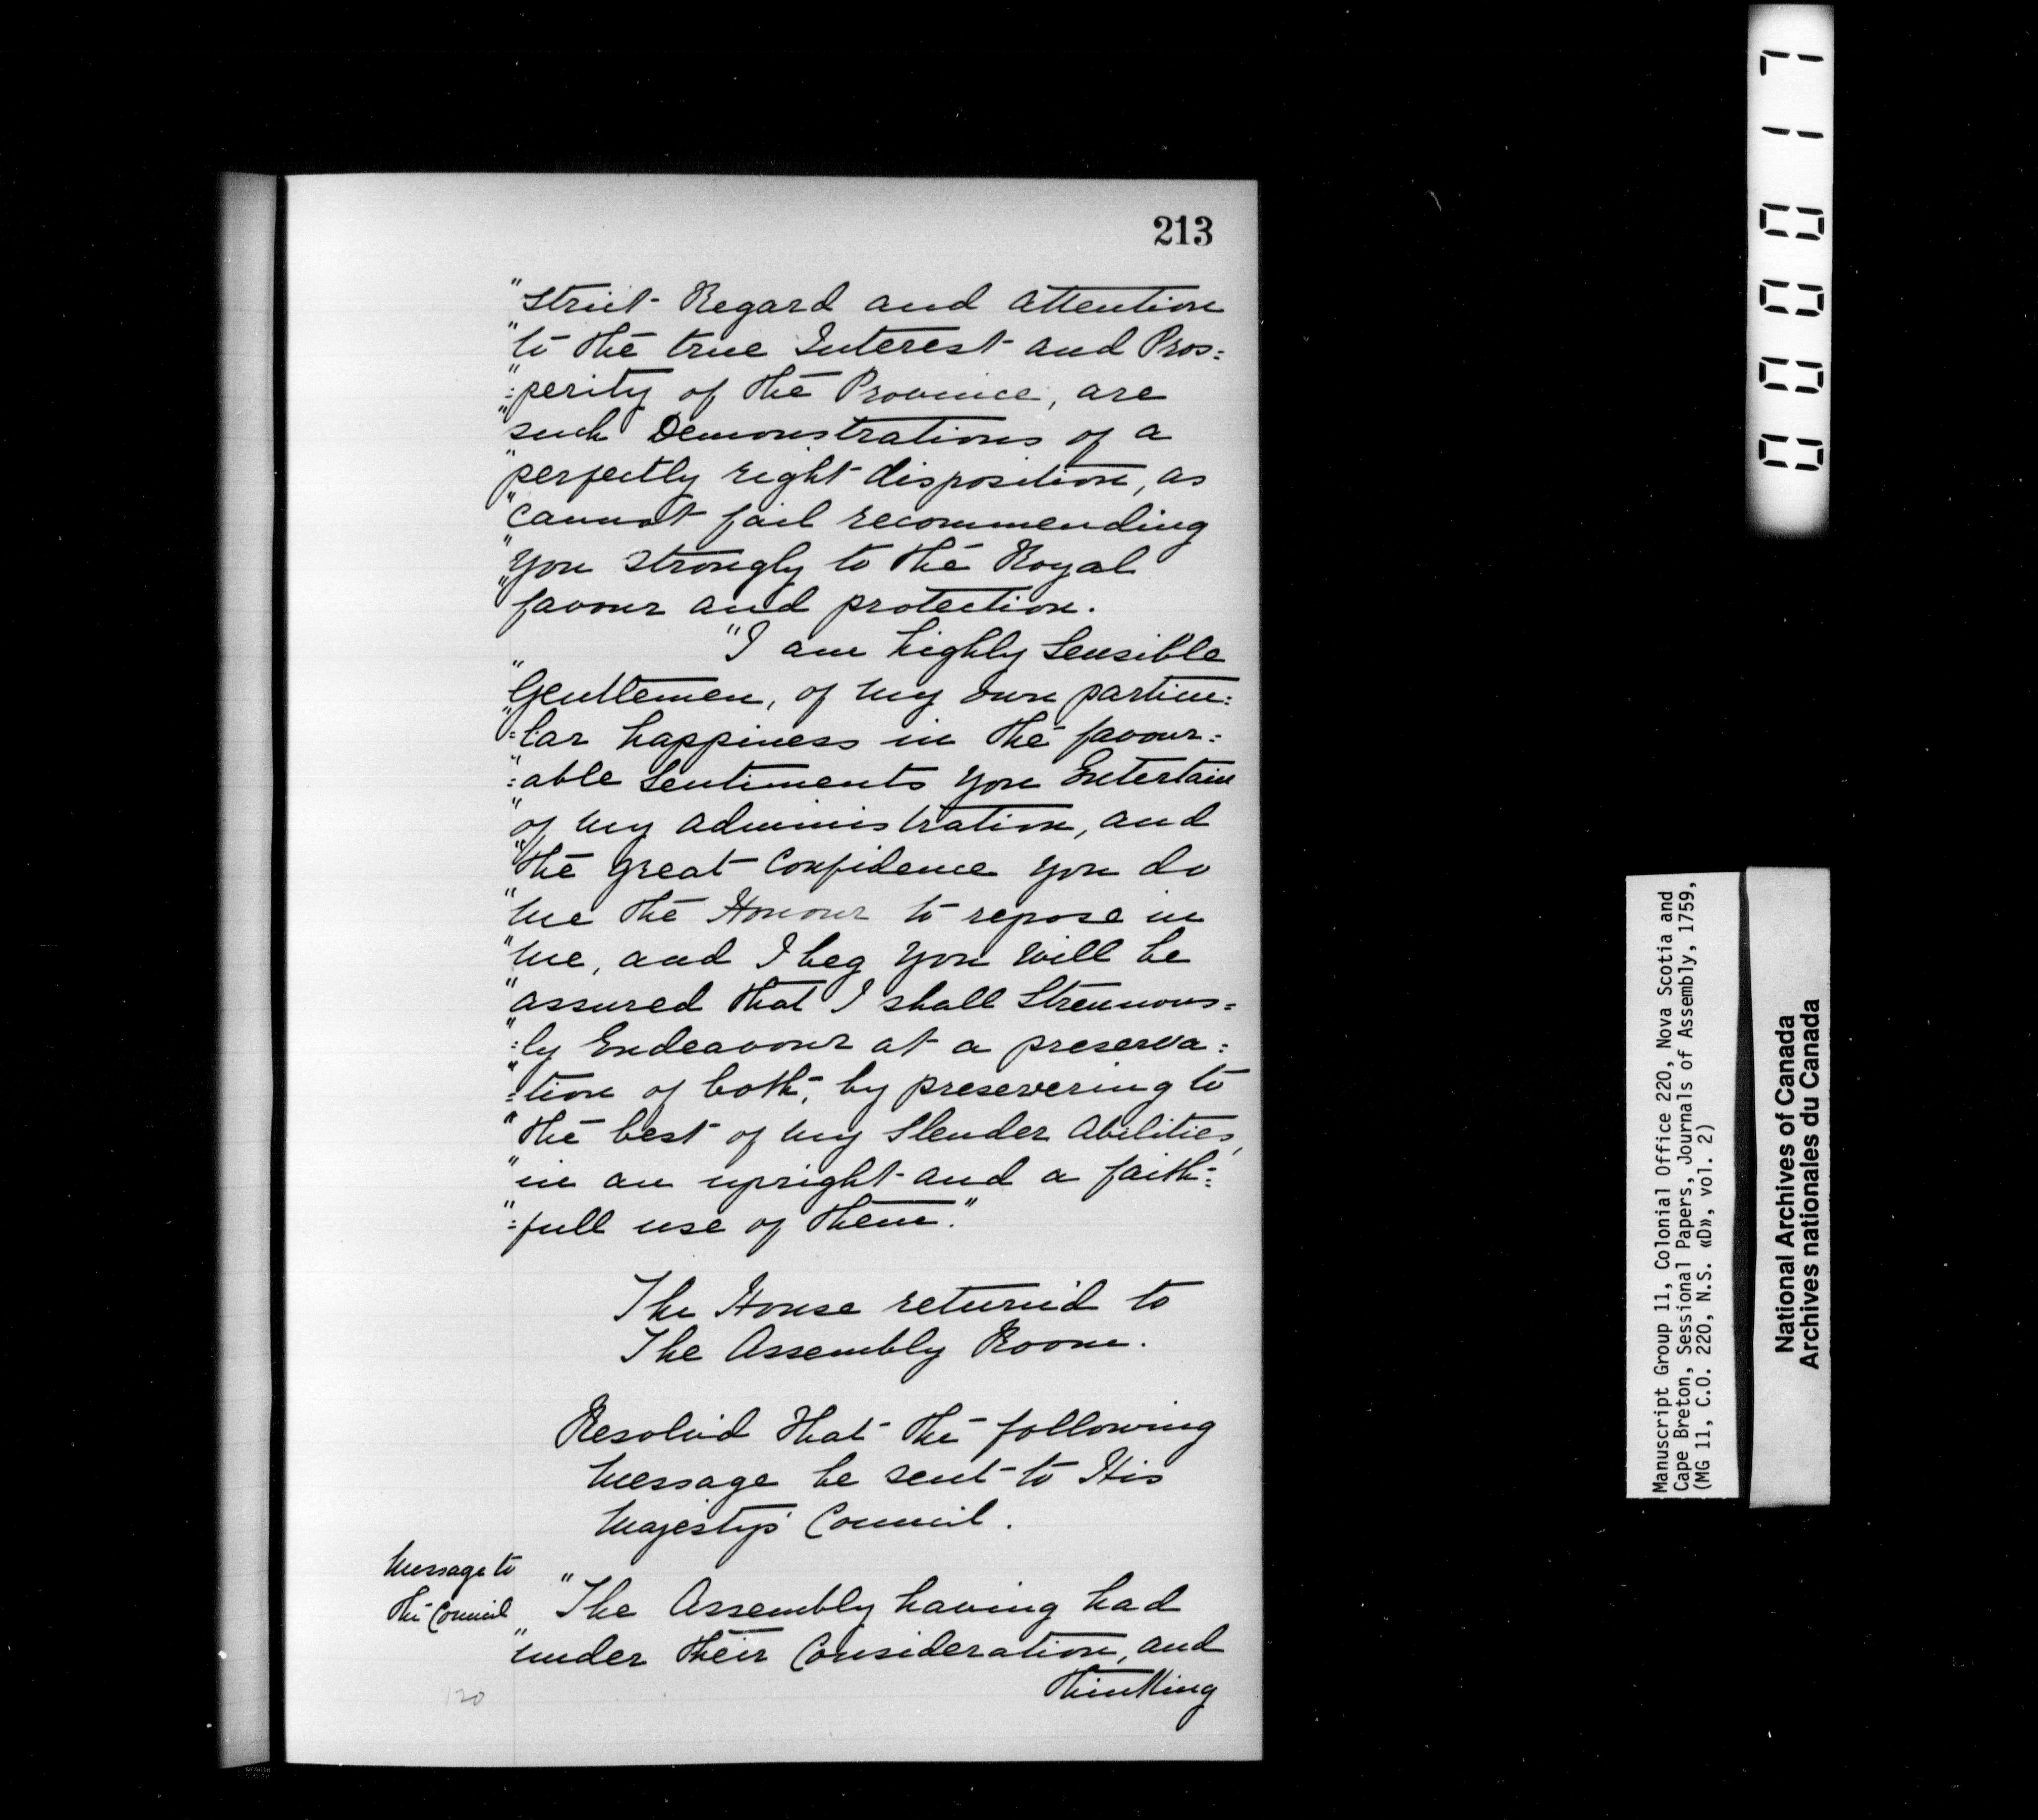 213
"strict Regard and attention
"to the true Interest and Pros=
"=perity of the Province, are
"such Demonstrations of a
"perfectly right disposition, as
"cannot fail recommending
"you strongly to the Royal
"favour and protection.
"I am highly Sensible
"Gentlemen, of my own particu=
"=lar happiness in the favour=
"=able Sentiments you Entertain
"of my administration, and
"the great Confidence you do
"me the Honour to repose in
"me, and I beg you will be
"assured that I shall Strenuous=
"=ly Endeavour at a preserva=
"=tion of both, by preservering to
"the best of my Slender Abilities,
"in an upright and a faith=
"=full use of them."
The House return'd to
The Assembly Room.
Resolv'd That the following
Message be sent to His
Majesty's Council.
Message to
the Council
"The Assembly having had
"under their Consideration, and
thinking
120
000017
Manuscript Group 11, Colonial Office 220, Nova Scotia and
Cape Breton, Sessional Papers, Journals of Assembly, 1759,
(MG 11, C.O. 220, N.S. «D», vol. 2)
National Archives of Canada
Archives nationales du Canada